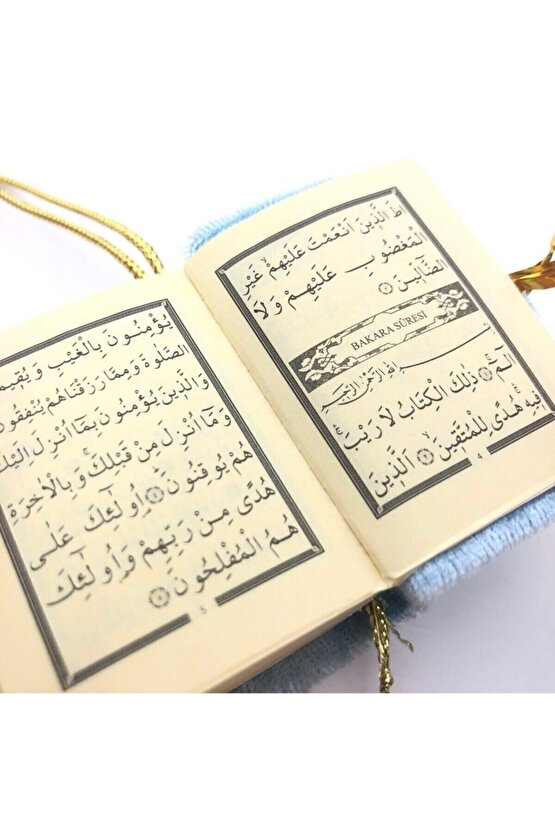 اطَ الَّذٖينَ اَنْعَمْتَ عَلَيْهِمْ غَيْرِ
الْمَغْضُوبِ عَلَيْهِمْ وَلَا
الضَّٓالّٖينَ ﴿٧﴾
BAKARA SÛRESİ
بِسْمِ اللّٰهِ الرَّحْمٰنِ الرَّحٖيمِ
الٓمٓ ﴿١﴾ ذٰلِكَ الْكِتَابُ لَا رَيْبَۚ
فٖيهِۚ هُدًى لِلْمُتَّقٖينَ ﴿٢﴾ اَلَّذٖينَ
4
يُؤْمِنُونَ بِالْغَيْبِ وَيُقٖيمُ
الصَّلٰوةَ وَمِمَّا رَزَقْنَاهُمْ يُنْفِقُونَ
وَالَّذٖينَ يُؤْمِنُونَ بِمَٓا اُنْزِلَ اِلَيْكَ
وَمَٓا اُنْزِلَ مِنْ قَبْلِكَۚ وَبِالْاٰخِرَةِ
هُمْ يُوقِنُونَ ﴿٤﴾ اُو۬لٰٓئِكَ عَلٰى
هُدًى مِنْ رَبِّهِمْ وَاُو۬لٰٓئِكَ
هُمُ الْمُفْلِحُونَ ﴿٥﴾
5